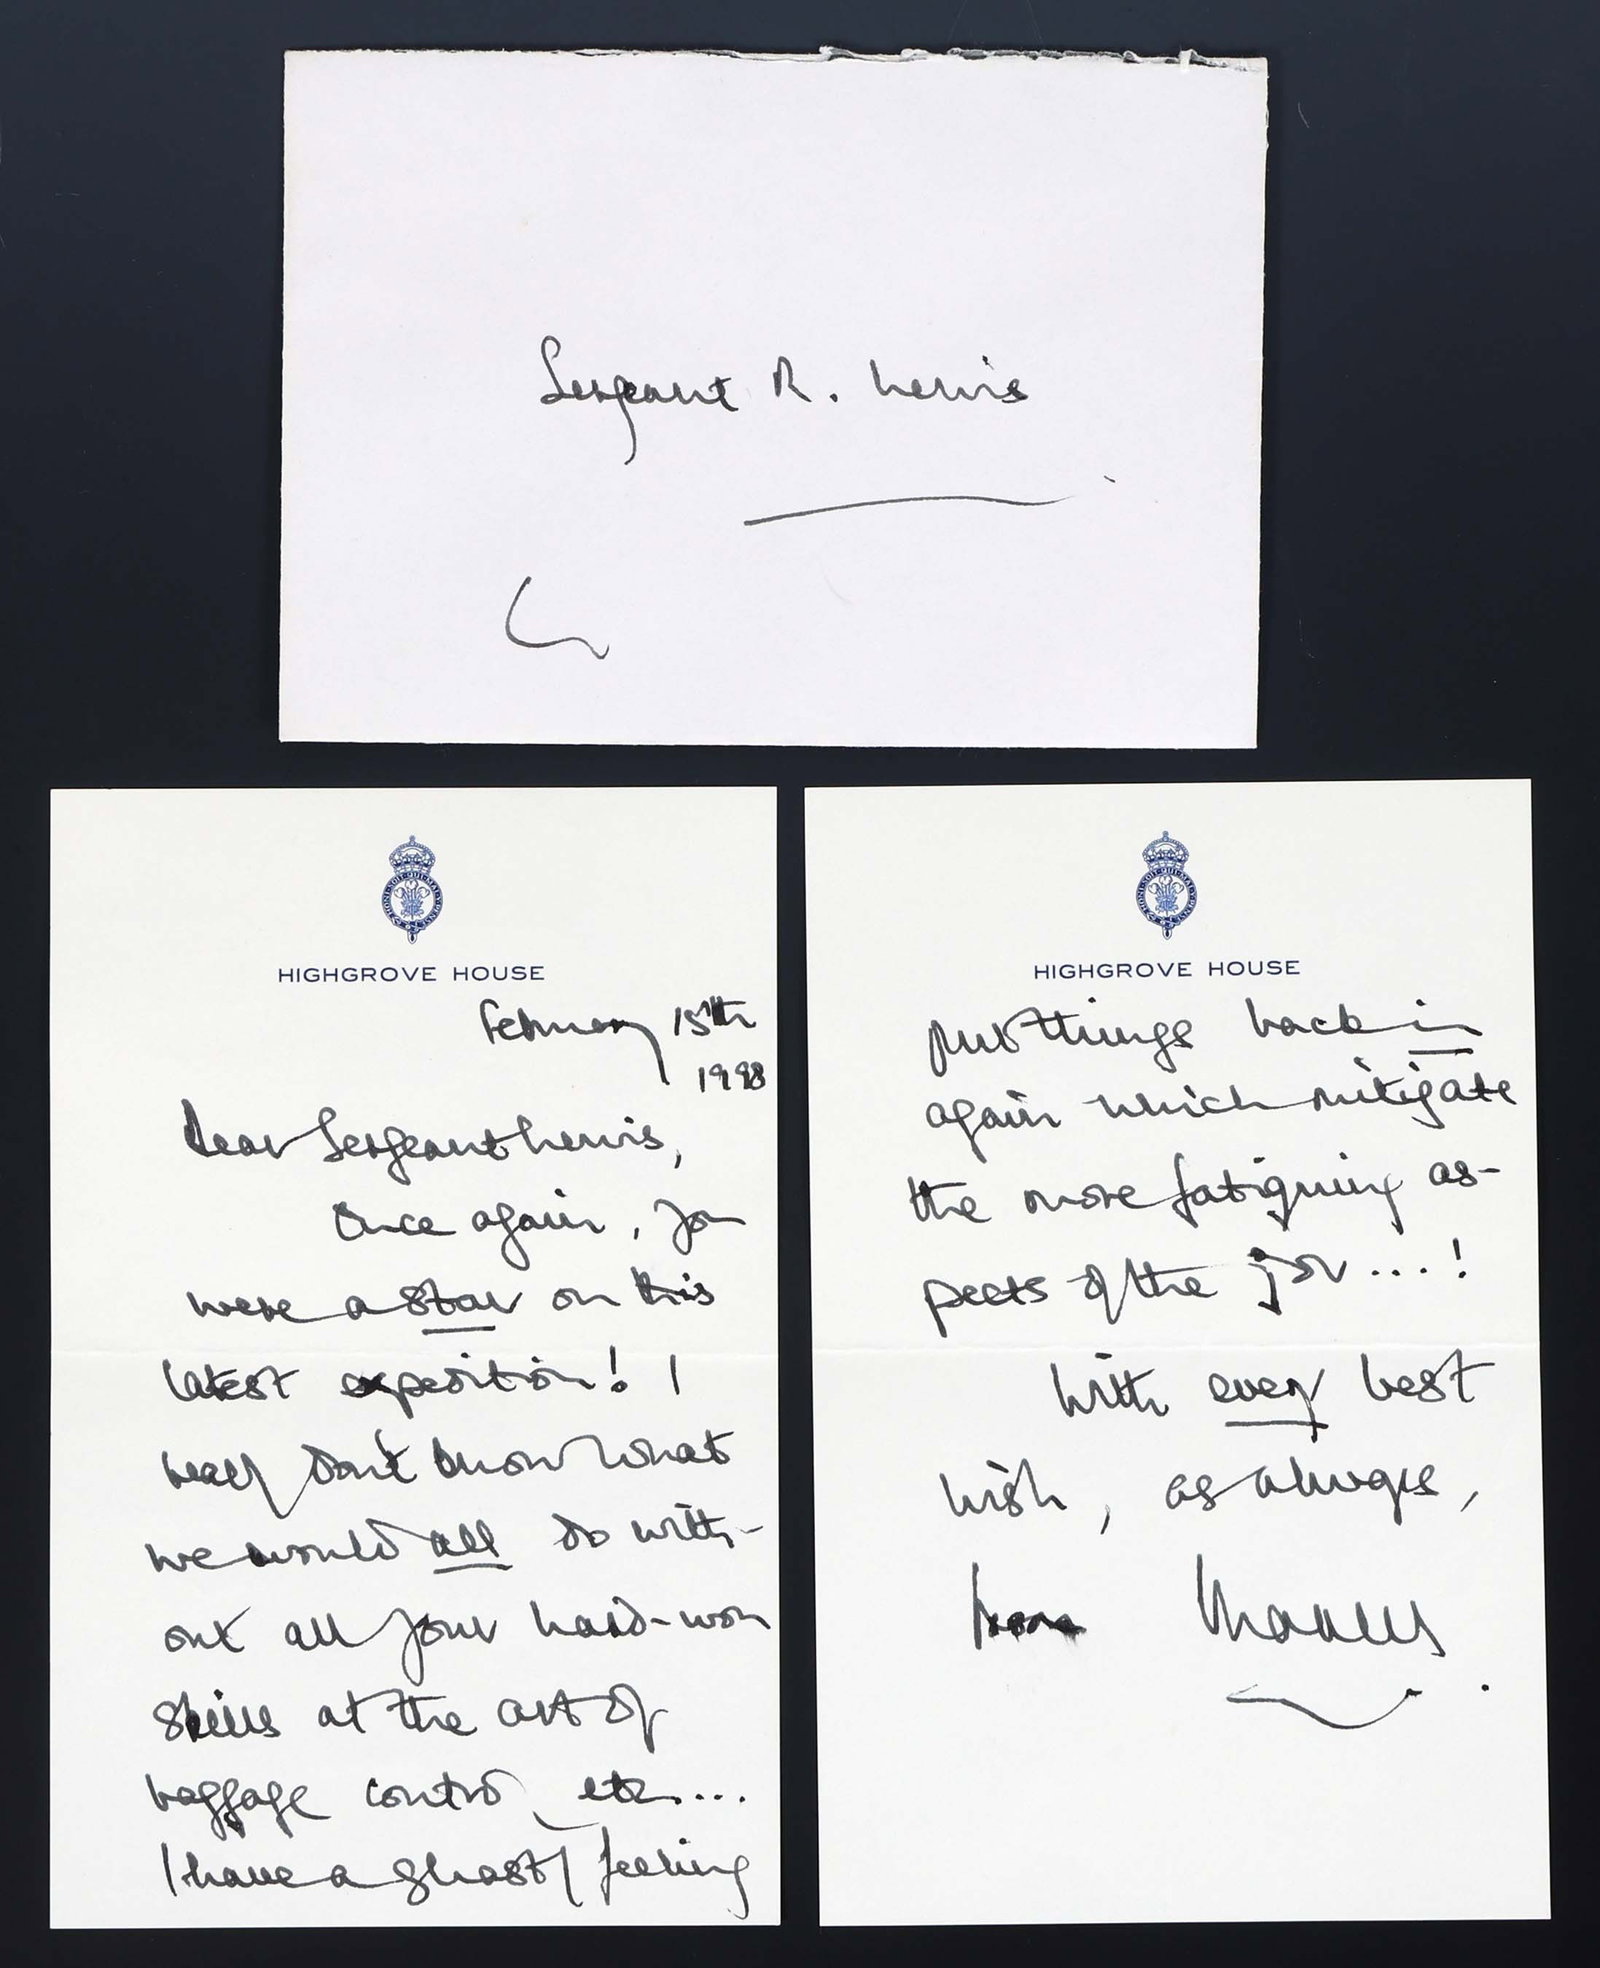 Sergeant R. Lewis
HONI·SOIT·QUI·MAL·Y·PENSE
HIGHGROVE HOUSE
February 15th
1998
Dear Sergeant Lewis,
Once again, you
were a star on this
latest expedition! I
really don't know what
we would all do with-
out all your hard-won
skills at the art of
baggage control, etc....
I have a ghastly feeling
HONI·SOIT·QUI·MAL·Y·PENSE
HIGHGROVE HOUSE
put things back in
again which mitigate
the more fatiguing as-
pects of the job....!
With every best
wish, as always,
from Charles